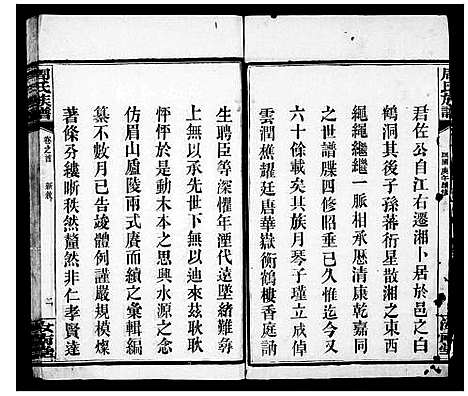 周氏族譜
君佐公自江右遷湘卜居於邑之白
鶴洞其後子孫蕃衍星散湘之東西
繩繩繼繼一脈相承歷清康乾嘉同
之世譜牒四修昭垂已久惟迄今又
六十餘載其族月琴子瑾立成倬
雲潤樵耀廷唐華嶽衡鶴樓香庭訥
生聘臣等深懼年湮代遠墜緒難尋
上無以承先世下無以裕來茲耿耿
怦怦於是動木本之思興水源之念
仿眉山廬陵兩式賡而續之彙輯編
纂不數月已告竣體例謹嚴規模燦
著條分縷晰秩然釐然非仁孝賢達
周氏族譜
卷之首
新敘
二
汝南堂